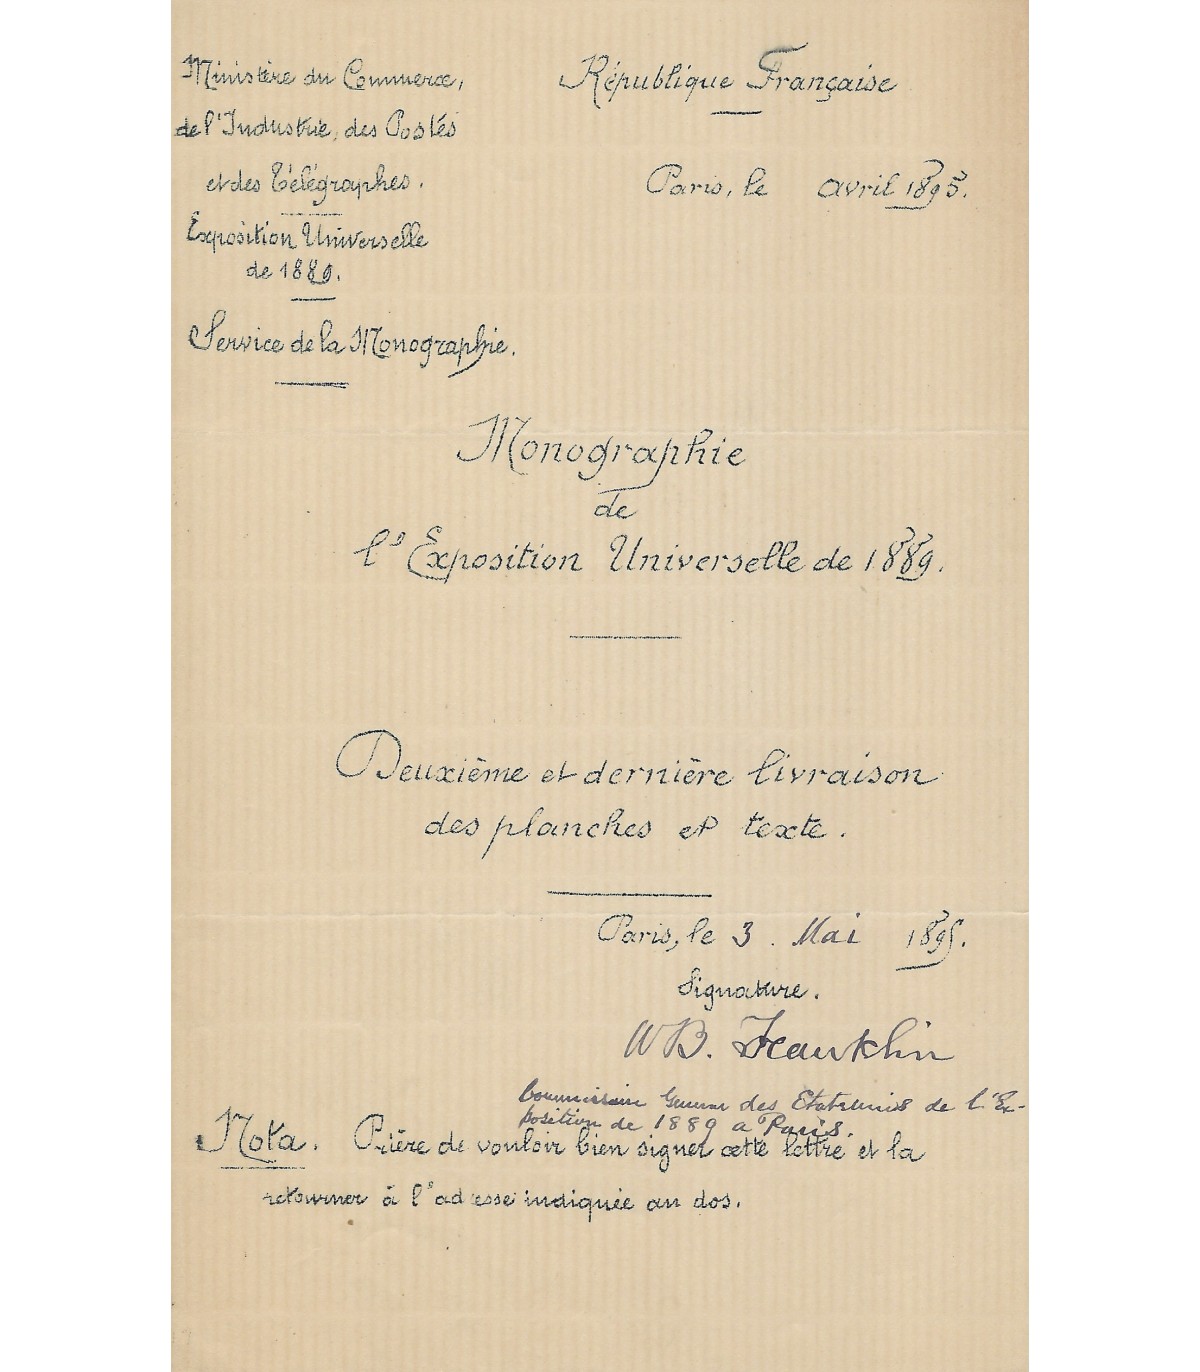 Ministère du Commerce,
de l'Industrie, des Postes
et des Télégraphes.
Exposition Universelle
de 1889.
Service de la Monographie.
République Française
Paris, le avril 1895.
Monographie
de
l'Exposition Universelle de 1889.
Deuxième et dernière livraison
des planches et texte.
Paris, le 3 Mai 1895.
Signature.
WB. Franklin
Commissaire General des Etats unis de l'Ex-
position de 1889 a Paris.
Nota. Prière de vouloir bien signer cette lettre et la
retourner à l'adresse indiquée au dos.